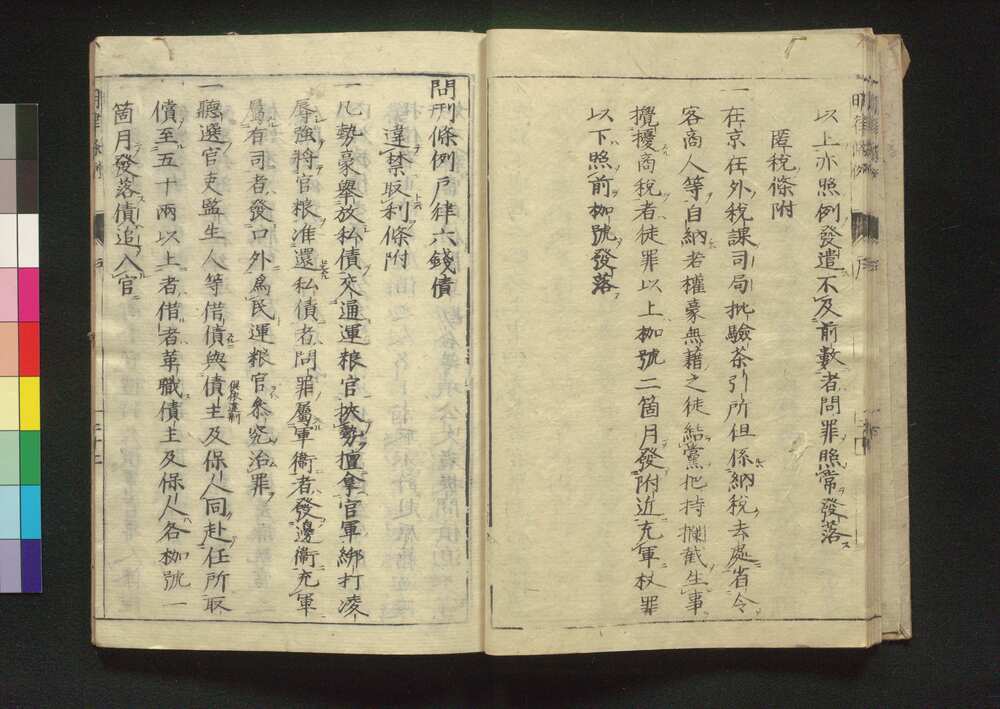 以上亦照例發遣不及前數者問罪照常發落
匿稅條附
一在京在外稅課司局批驗茶引所但係納稅去處省令
客商人等自納若權豪無藉之徒結黨把持攔截生事
攪擾商稅者徒罪以上枷號二箇月發附近充軍杖罪
以下照前枷號發落
問刑條例戶律六錢債
違禁取利條附
一凡勢豪舉放私債交通運粮官挾勢擅拿官軍綁打凌
辱強將官粮准還私債者問罪屬軍衛者發邊衛充軍
屬有司者發口外爲民運粮官叅究治罪
一聽選官吏監生人等借債與債主及保人同赴任所取
債至五十兩以上者借者革職債主及保人各枷號一
箇月發落債追入官